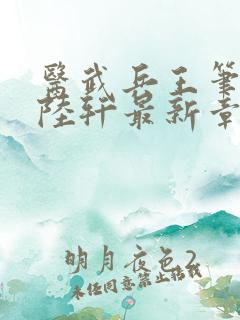 醫武兵王筆
陸軒最新章
明月夜色2
未经同意禁止转载